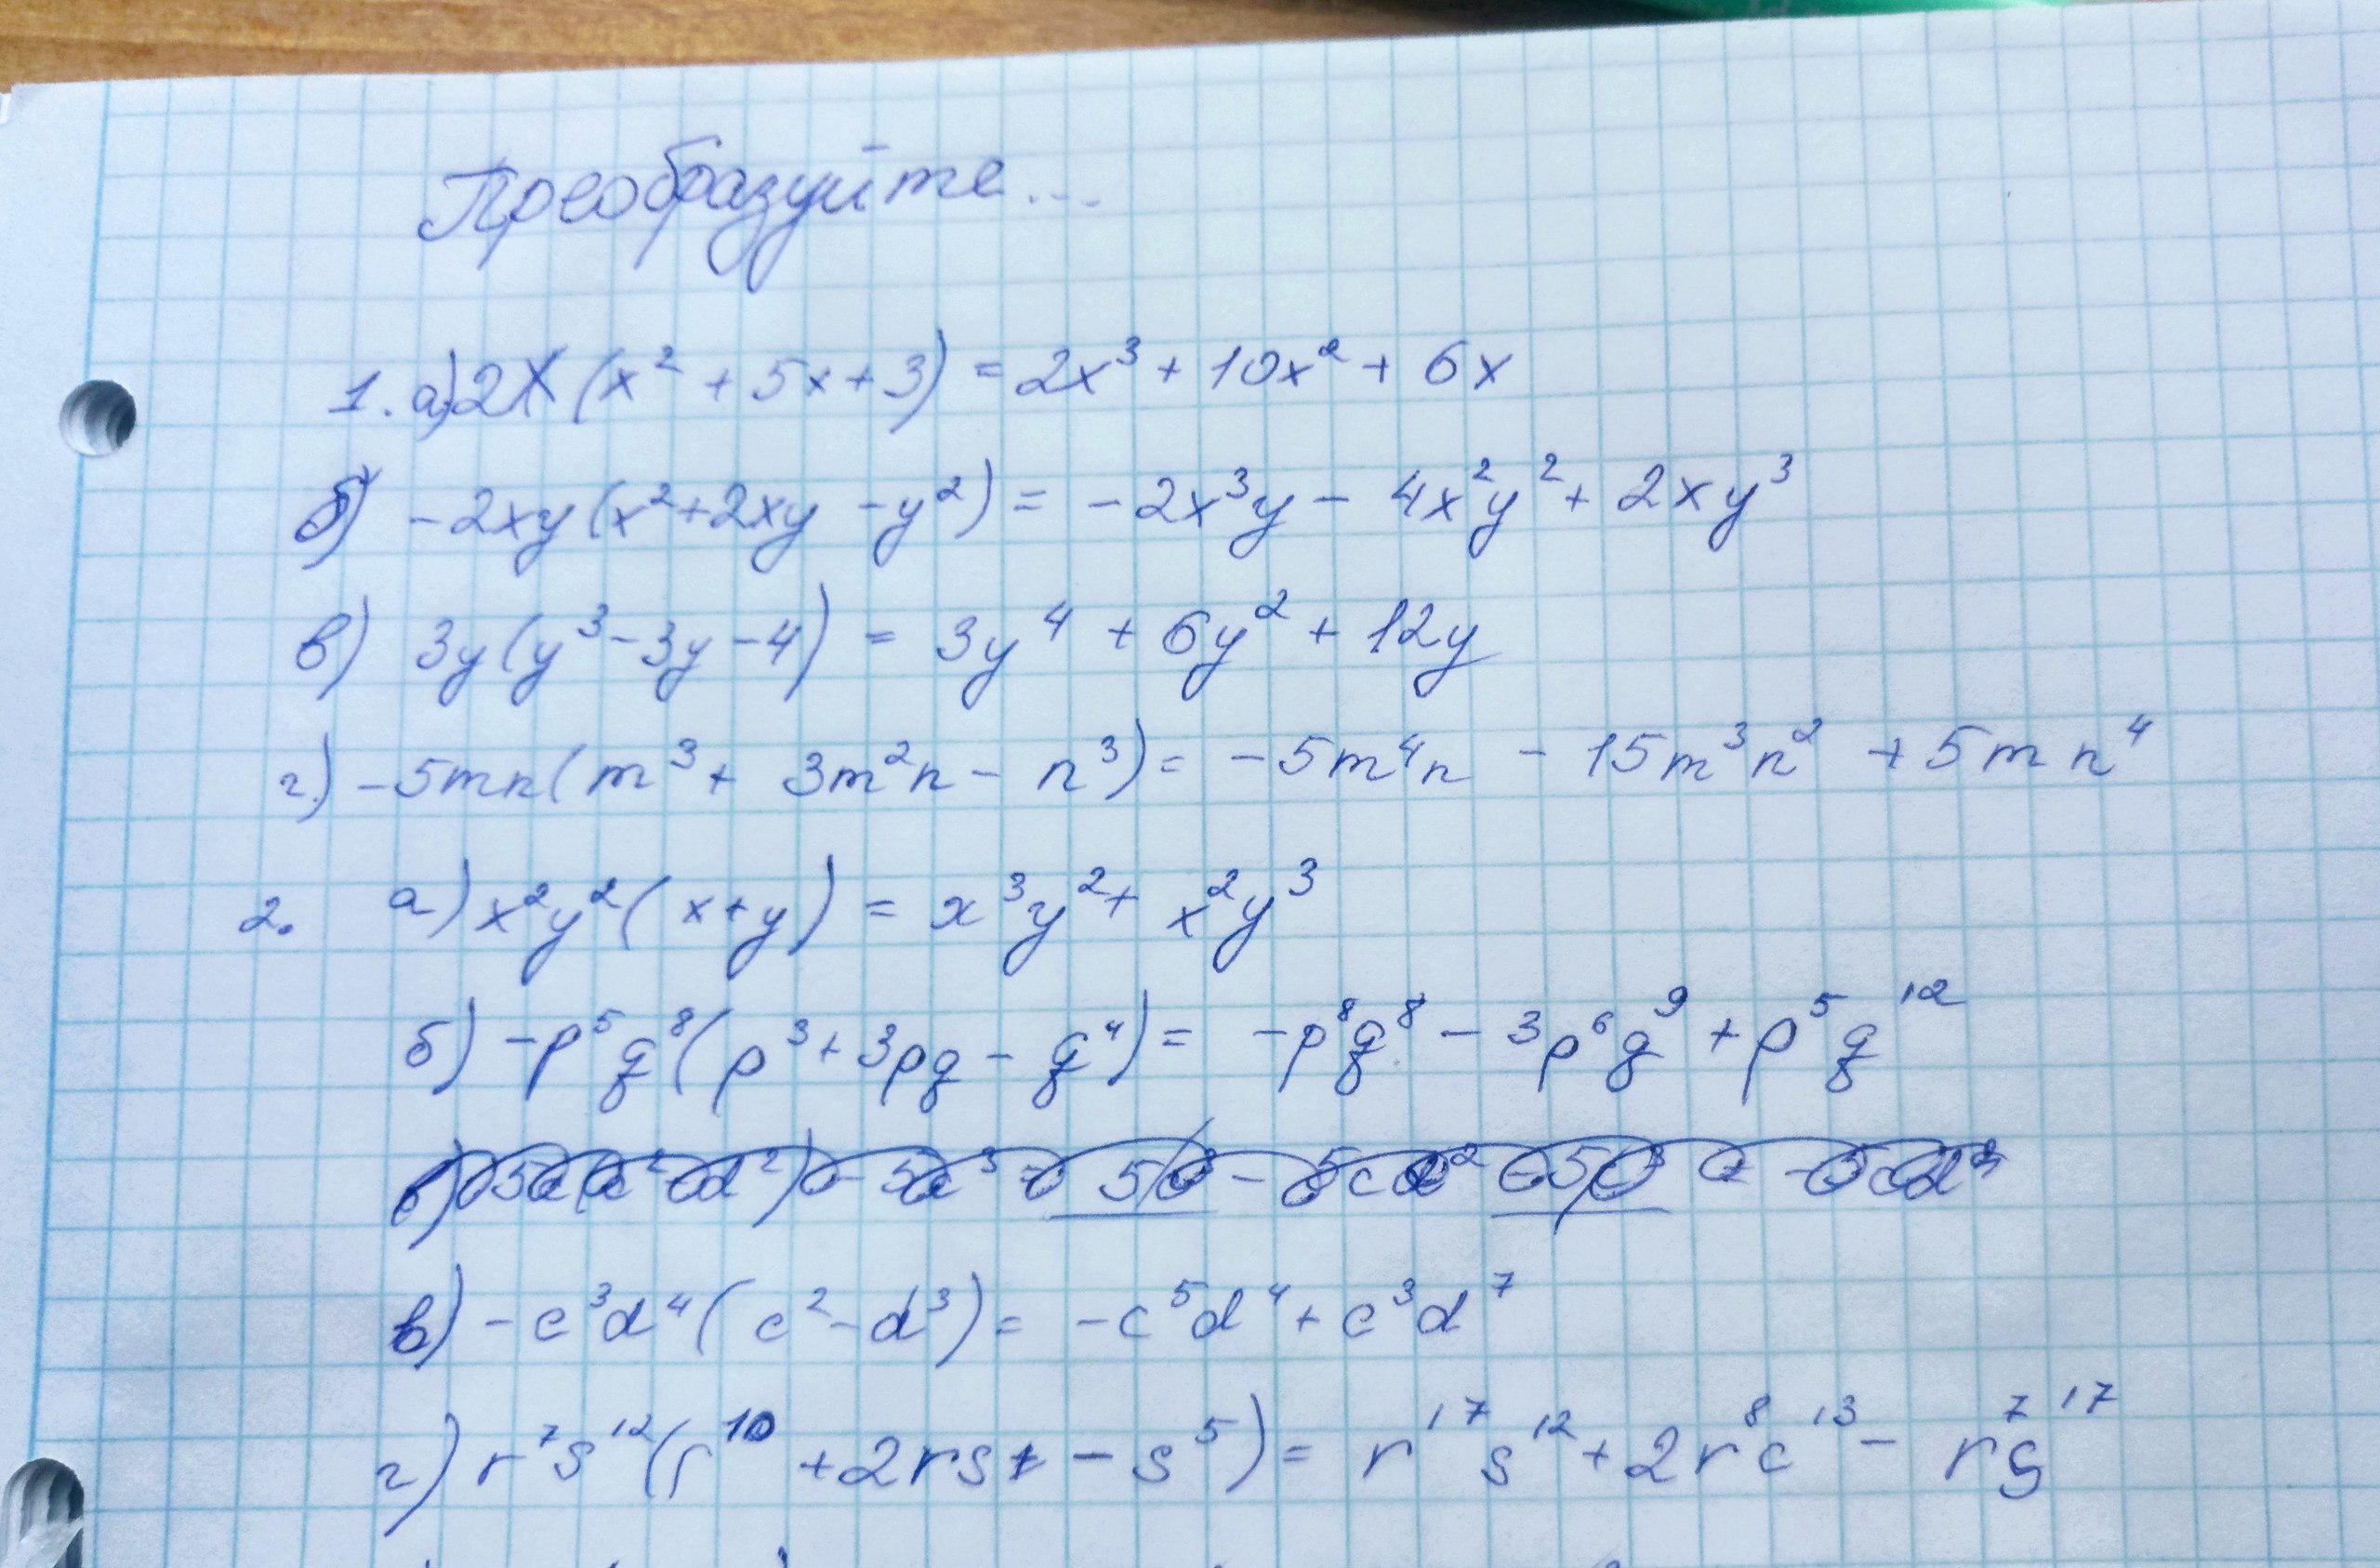 Преобразуйте...
1. а) 2x(x² + 5x + 3) = 2x³ + 10x² + 6x
б) -2xy(x² + 2xy - y²) = -2x³y - 4x²y² + 2xy³
в) 3y(y³ - 3y - 4) = 3y⁴ + 6y² + 12y
г) -5mn(m³ + 3m²n - n³) = -5m⁴n - 15m³n² + 5mn⁴
2. а) x²y²(x + y) = x³y² + x²y³
б) -p⁵q⁸(p³ + 3pq - q⁴) = -p⁸q⁸ - 3p⁶q⁹ + p⁵q¹²
в) -c³d⁴(c² - d³) = -c⁵d⁴ + c³d⁷
г) r⁷s¹²(r¹⁰ + 2rs - s⁵) = r¹⁷s¹² + 2r⁸c¹³ - r⁷s¹⁷